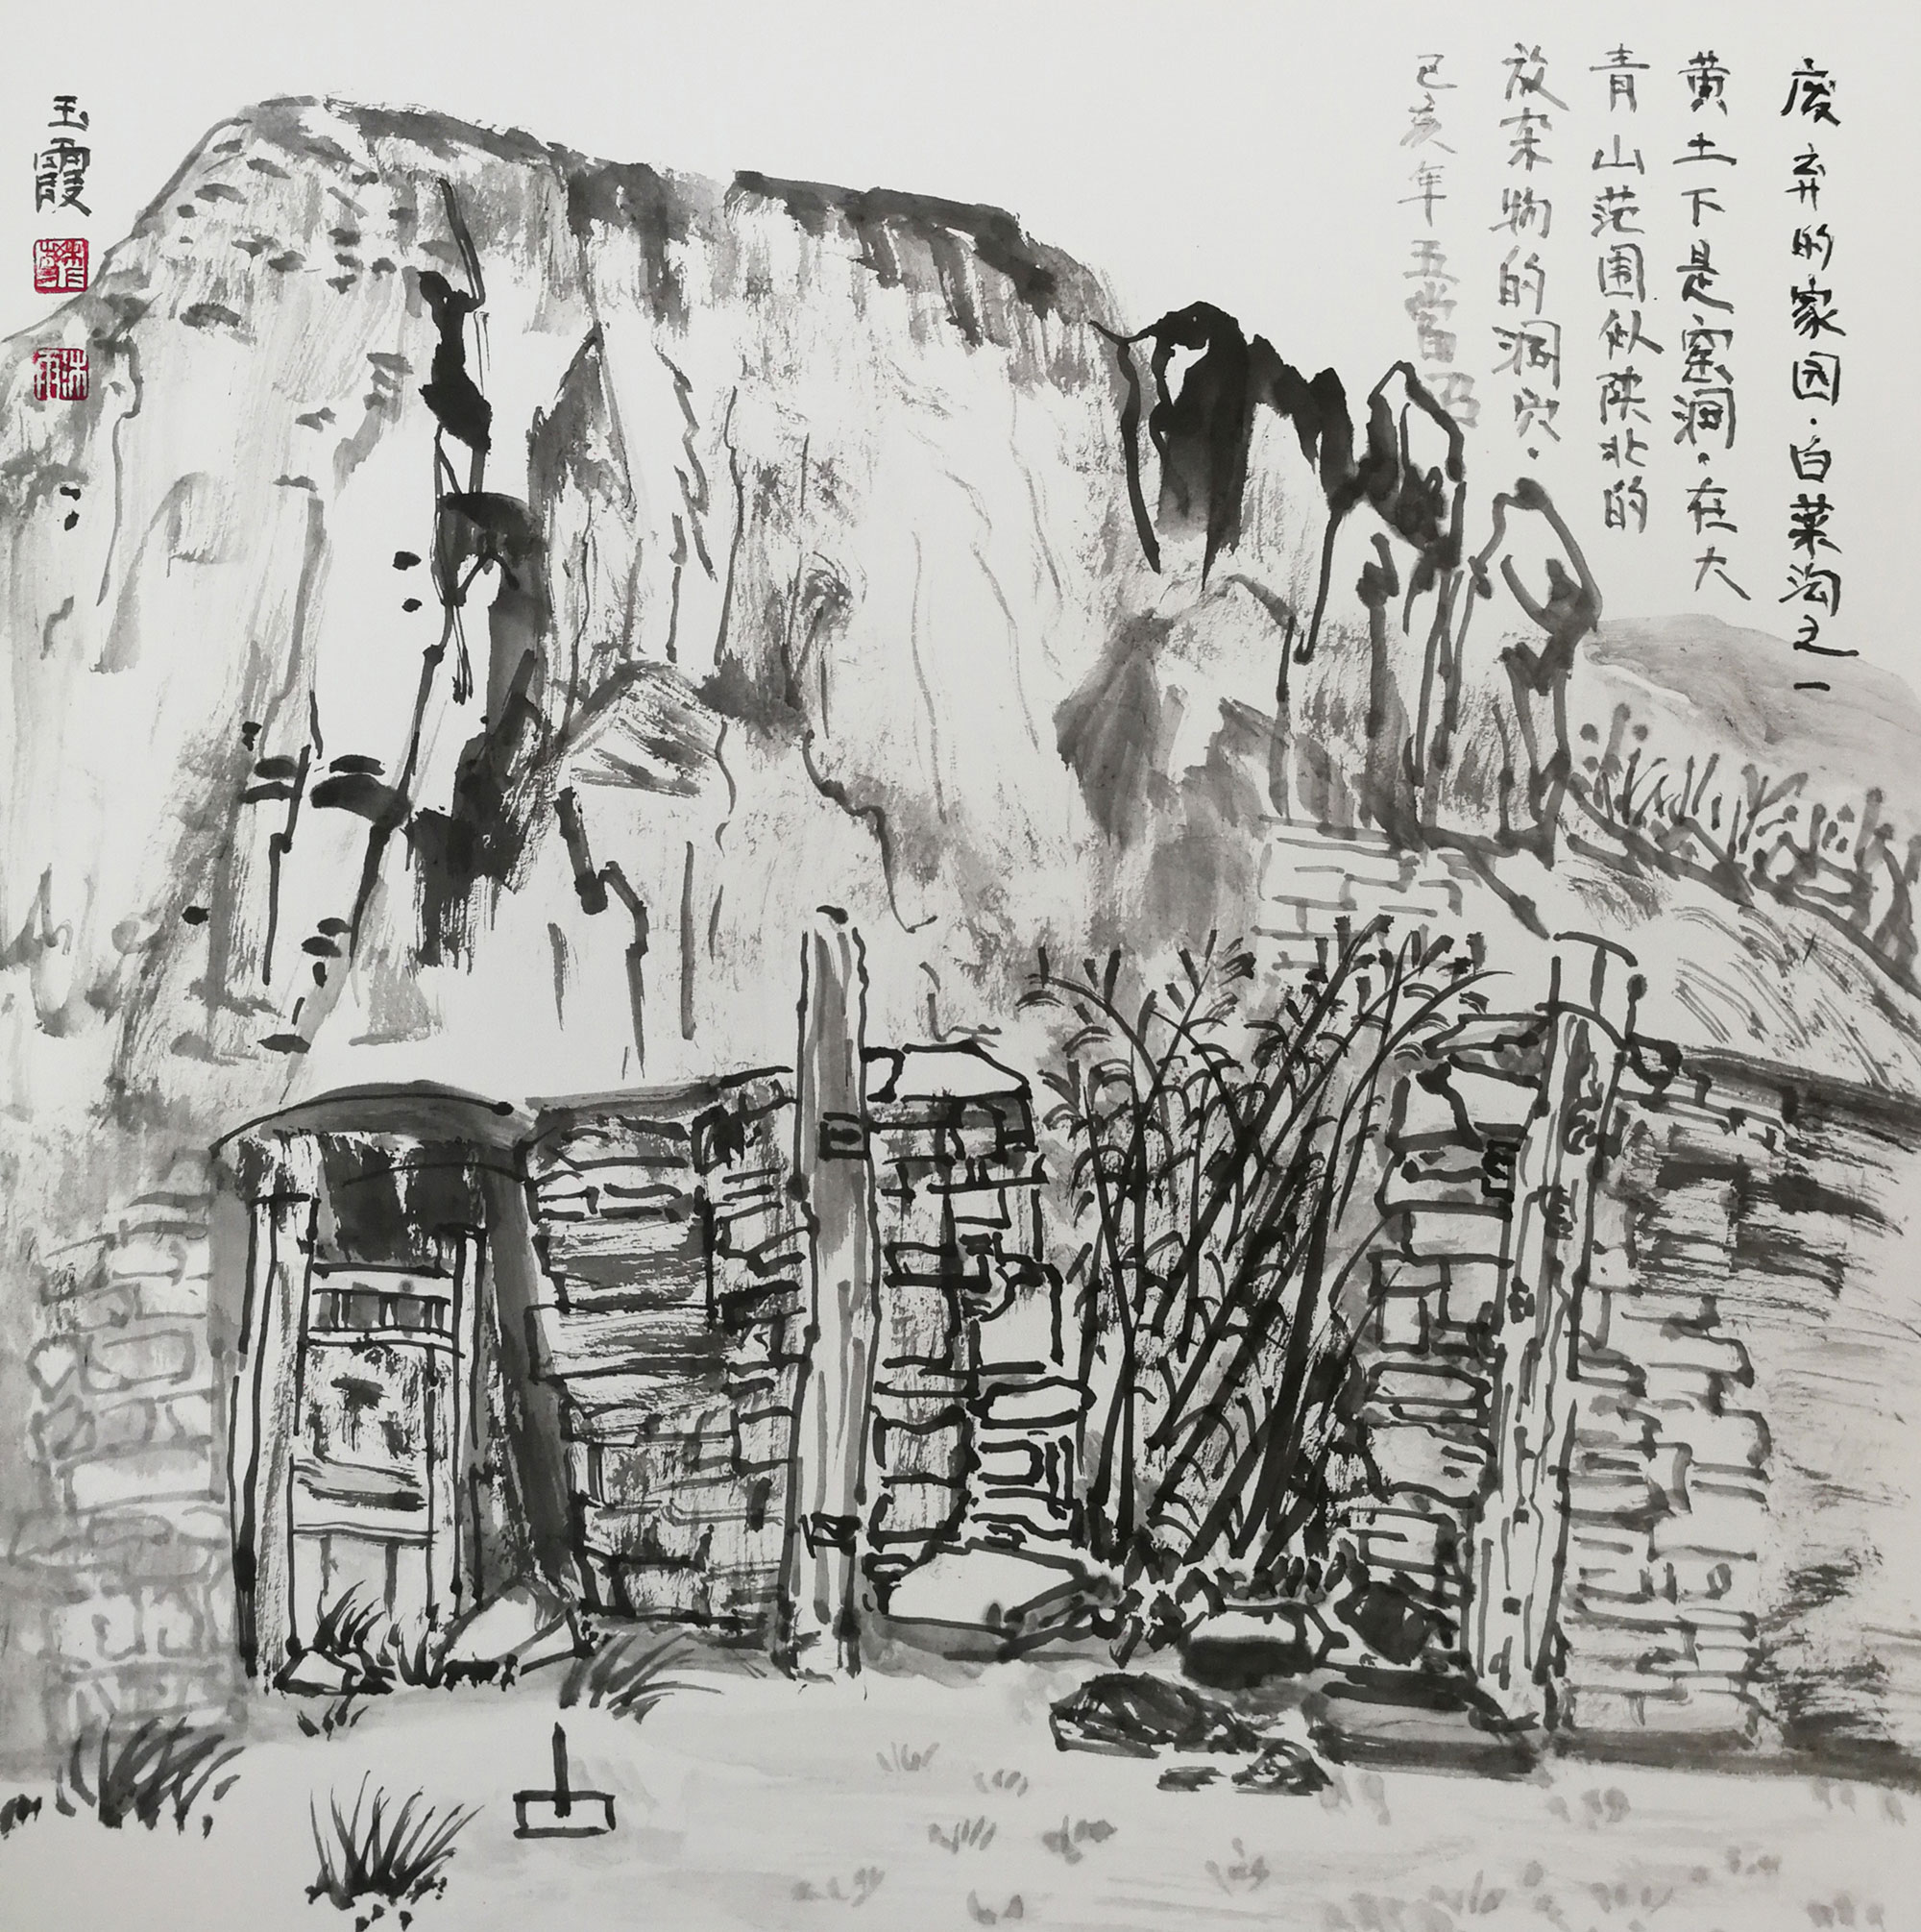 废弃的家园.白菜沟之一
黄土下是窑洞.在大
青山范围似陕北的
放杂物的洞穴.
己亥年五当召
玉霞